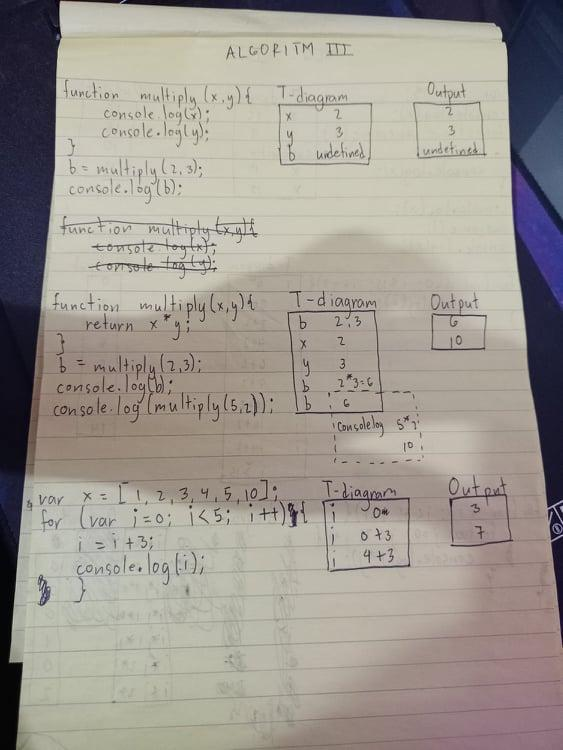 ALGORITM III
function multiply (x,y){
console.log(x);
console.log(y);
}
b = multiply (2,3);
console.log(b);
T-diagram
x 2
y 3
b undefined
Output
2
3
undefined
function multiply (x,y){
console log(x);
console log(y);
function multiply(x,y){
return x*y;
}
b = multiply(2,3);
console.log(b);
console.log(multiply(5,2));
T-diagram
b 2,3
x 2
y 3
b 2*3=6
b 6
Consolelog 5*2
10
Output
6
10
var x = [1, 2, 3, 4, 5, 10];
for (var i=0; i<5; i++) {
i = i+3;
console.log(i);
}
T-diagram
i 0
i 0+3
i 4+3
Output
3
7